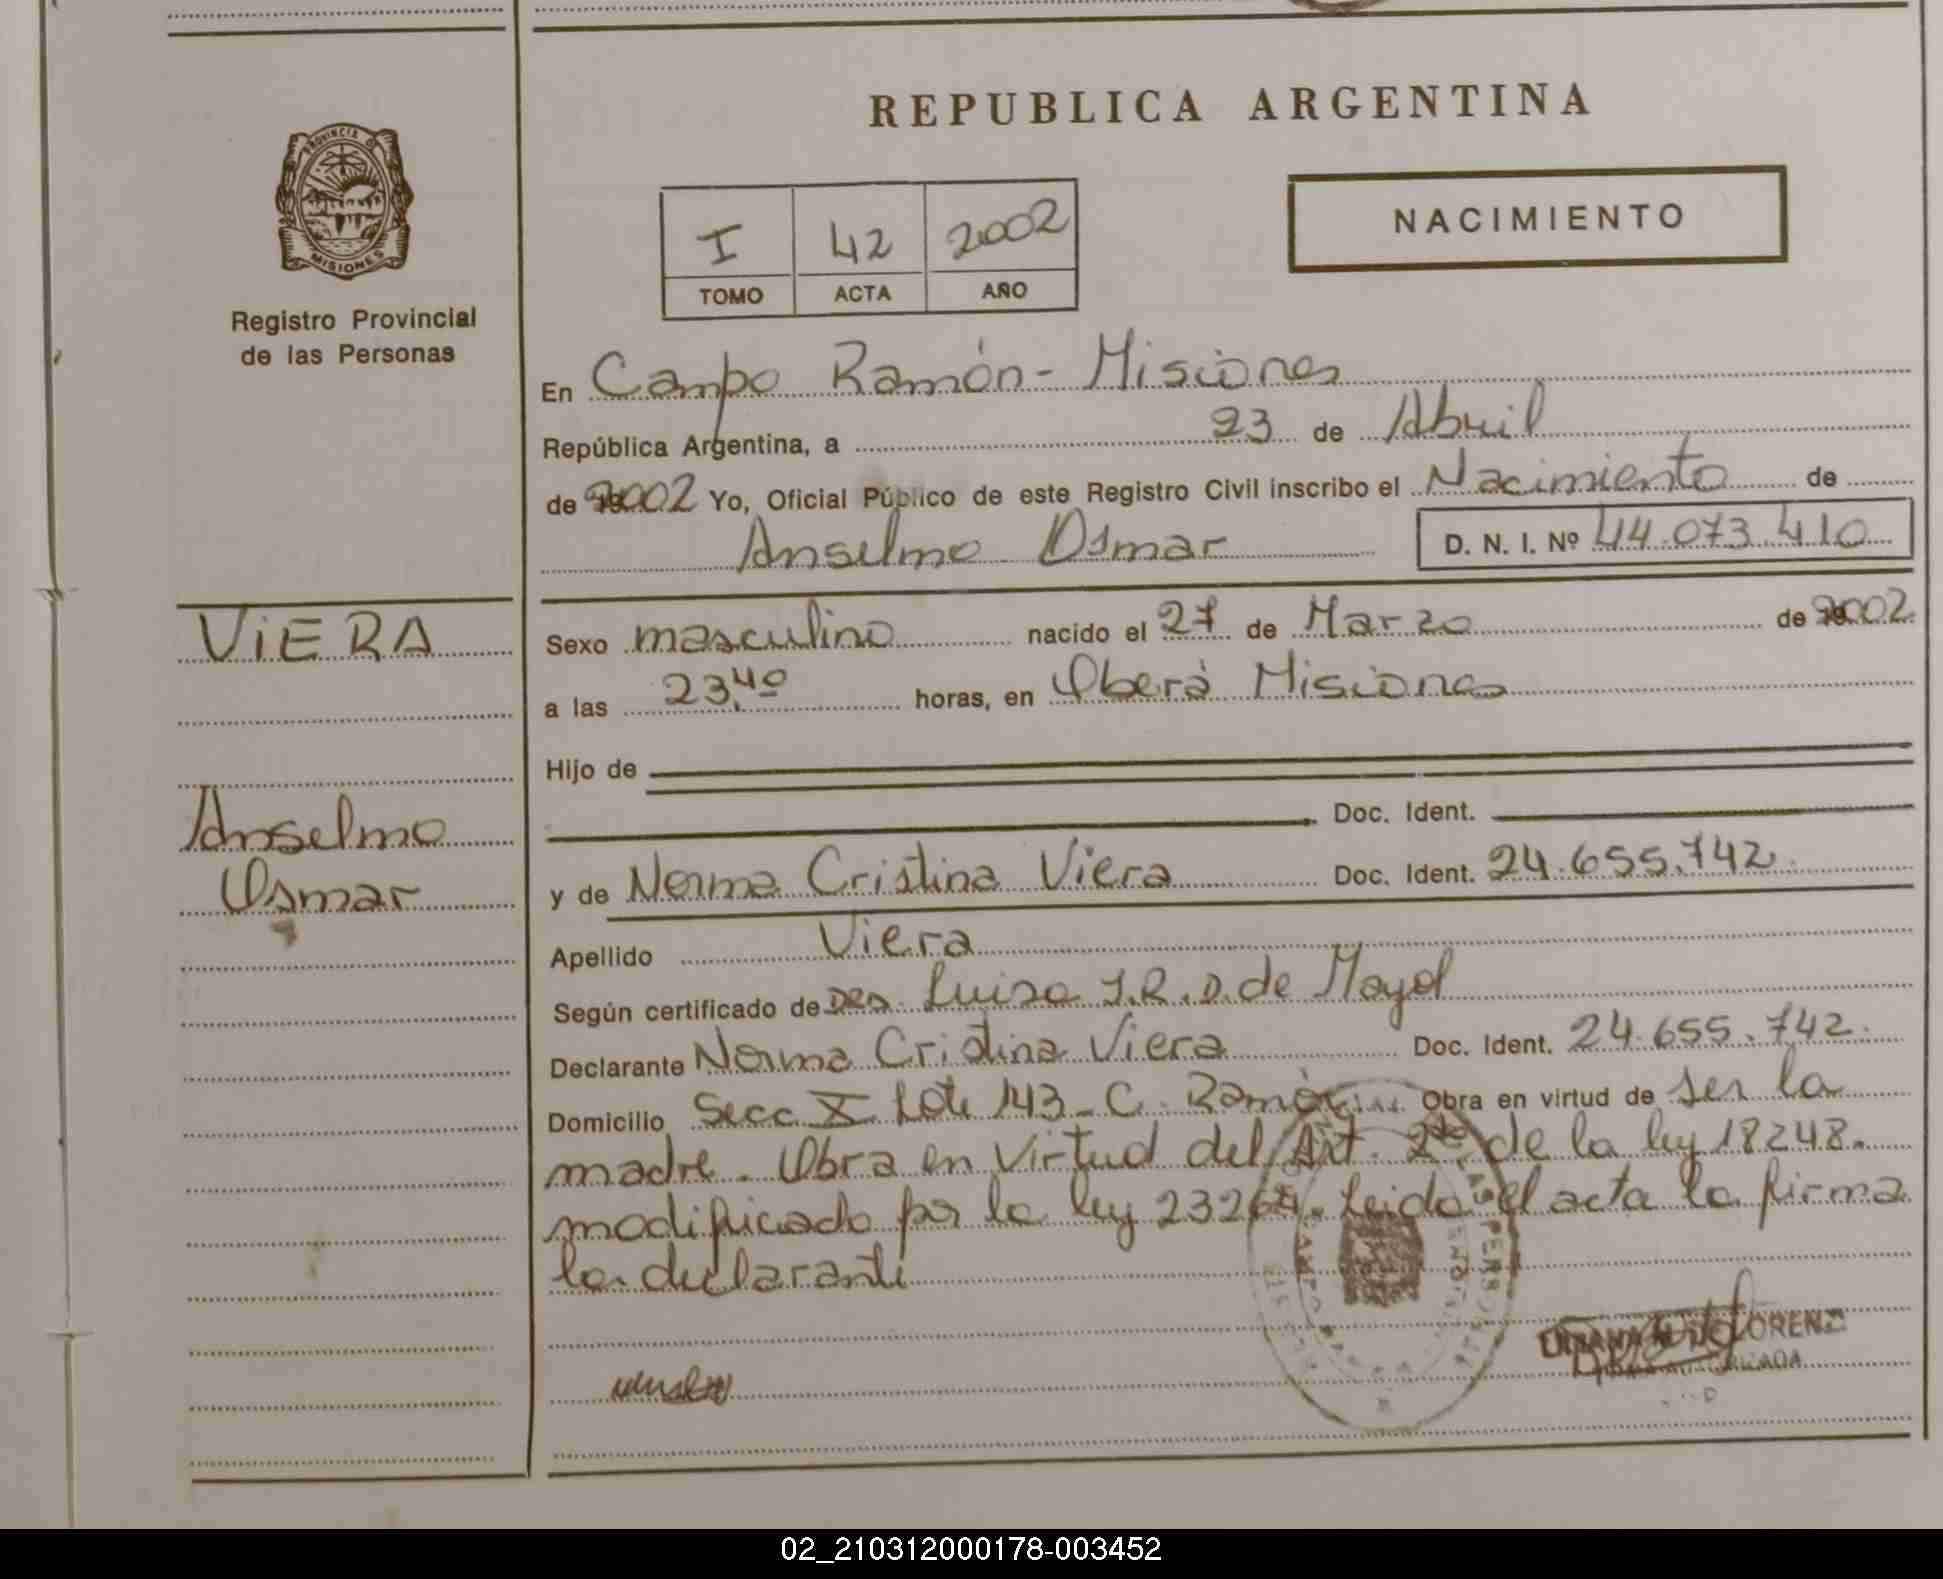 REPUBLICA ARGENTINA
PROVINCIA DE
MISIONES
Registro Provincial
de las Personas
I 42 2002
TOMO ACTA AÑO
NACIMIENTO
En Campo Ramón - Misiones
República Argentina, a 23 de Abril
de 2002 Yo, Oficial Público de este Registro Civil inscribo el Nacimiento de
Anselmo Osmar D. N. I. Nº 44.073.410
VIERA
Anselmo
Osmar
Sexo masculino nacido el 27 de Marzo de 2002.
a las 23,40 horas, en Oberá Misiones
Hijo de
Doc. Ident.
y de Norma Cristina Viera Doc. Ident. 24.655.742.
Apellido Viera
Según certificado de Luisa J.R.D. de Mayol
Declarante Norma Cristina Viera Doc. Ident. 24.655.742.
Domicilio Secc X Lote 143 - C. Ramón Obra en virtud de ser la
madre. Obra en virtud del Art. 2do de la ley 18248.
modificado por la ley 23264. Leida el acta la firma
la declarante
LORENZ
AUTORIZADA
02_210312000178-003452